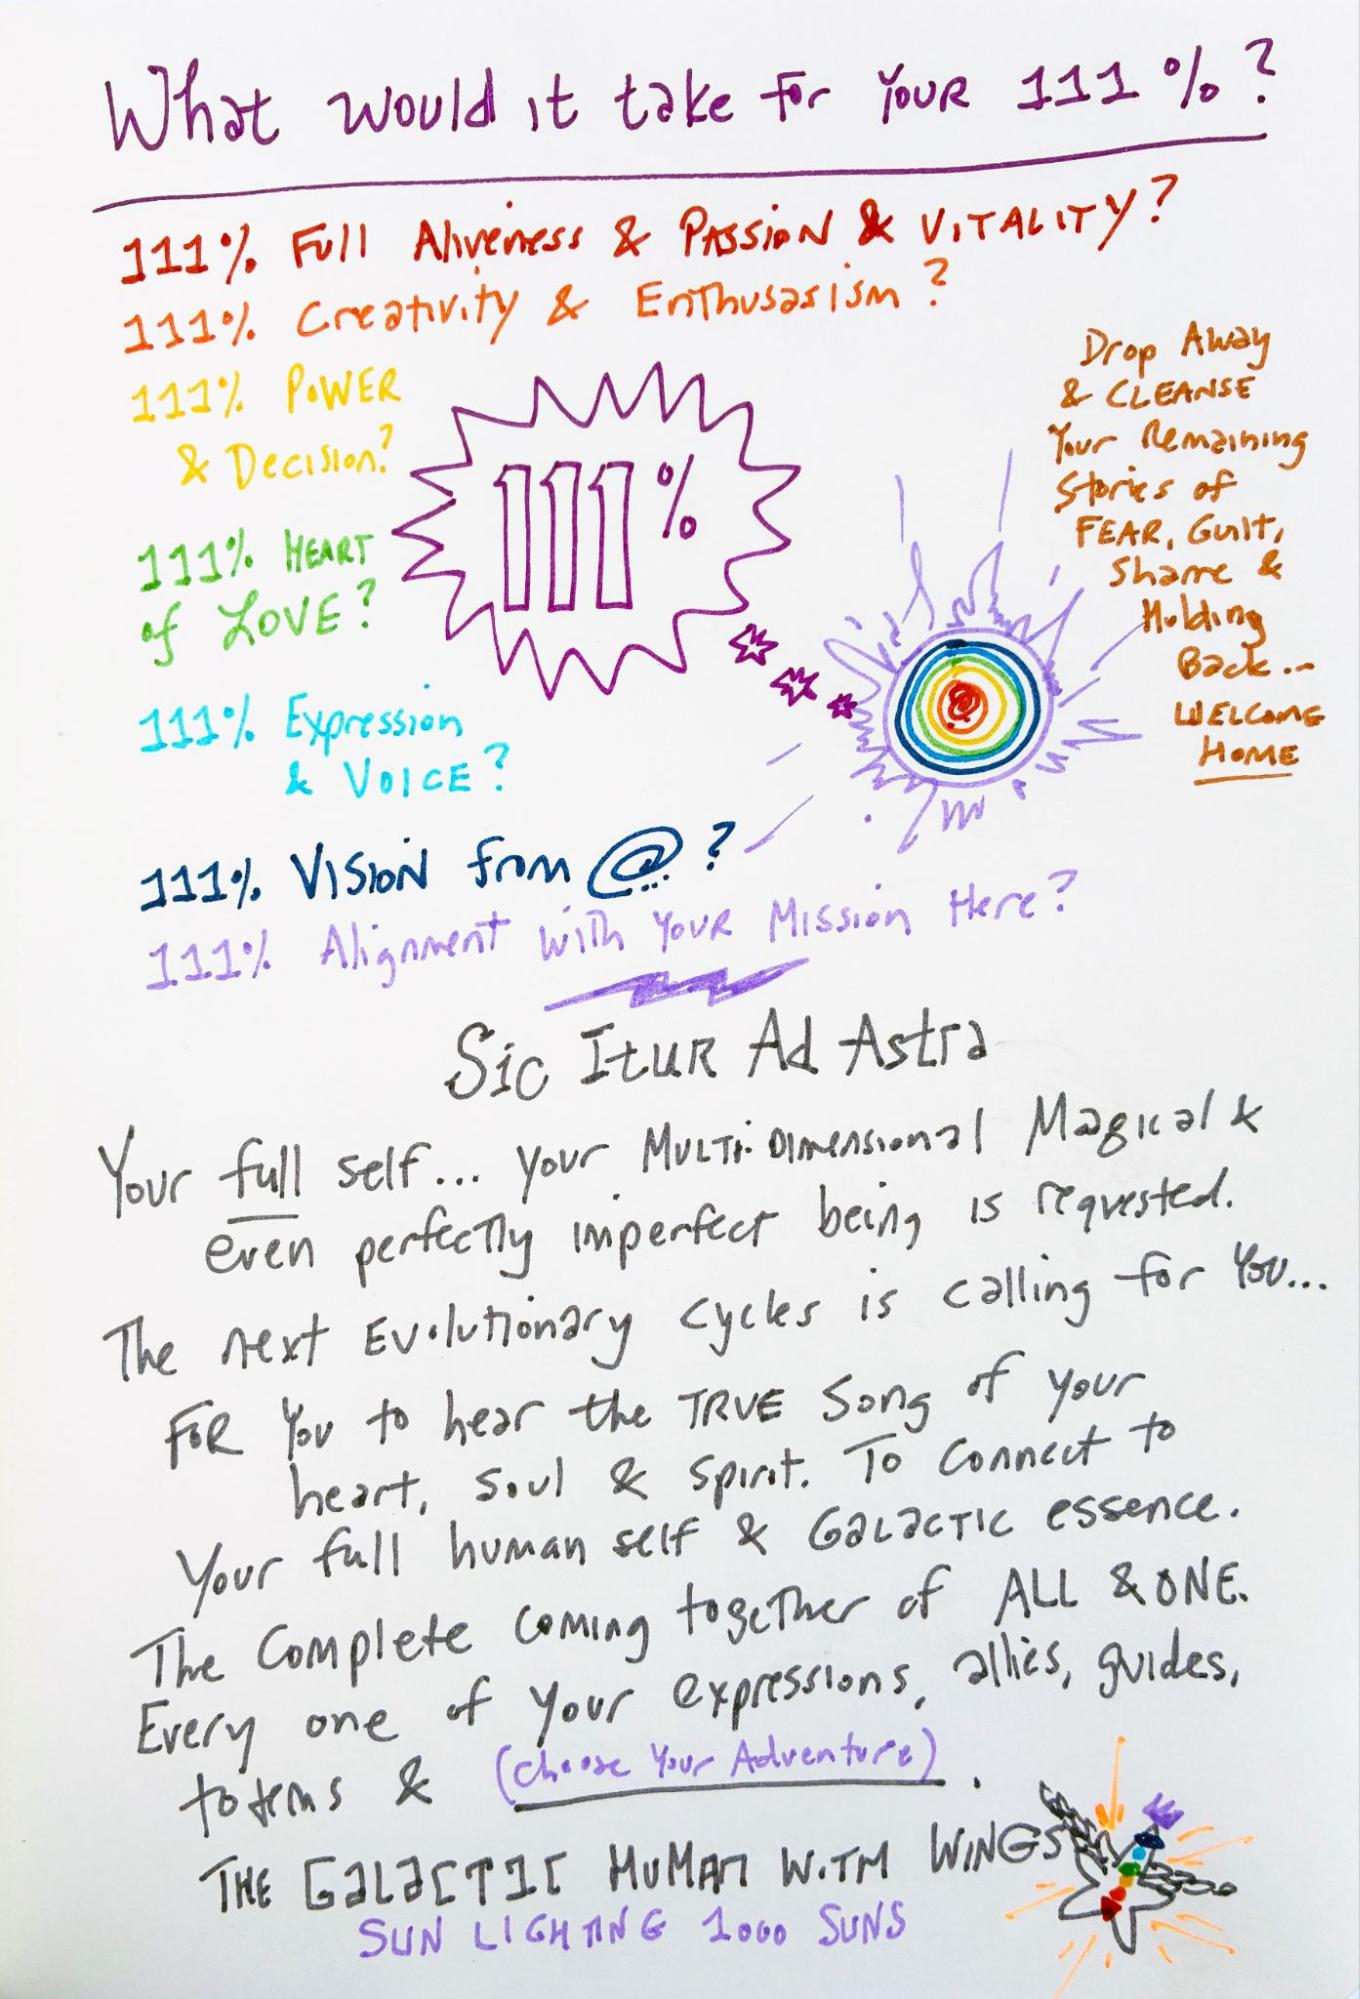 What would it take for Your 111%?
111% Full Aliveness & Passion & VITALITY?
111% Creativity & Enthusasism?
111% POWER
& Decision?
111%
Drop Away
& CLEANSE
Your Remaining
Stories of
FEAR, Guilt,
Shame &
Holding
Back...
WELCOME
HOME
111% HEART
of LOVE?
111% Expression
& VOICE?
111% VISION from @?
111% Alignment with Your Mission Here?
Sic Itur Ad Astra
Your full self... your Multi-Dimensional Magical &
even perfectly imperfect being is requested.
The next Evolutionary cycles is calling for You...
FOR You to hear the TRUE Song of your
heart, soul & spirit. To Connect to
Your full human self & Galactic essence.
The Complete coming together of ALL & ONE.
Every one of your expressions, allies, guides,
totems & (choose Your Adventure).
THE GALACTIC HUMAN WITH WINGS
SUN LIGHTING 1000 SUNS